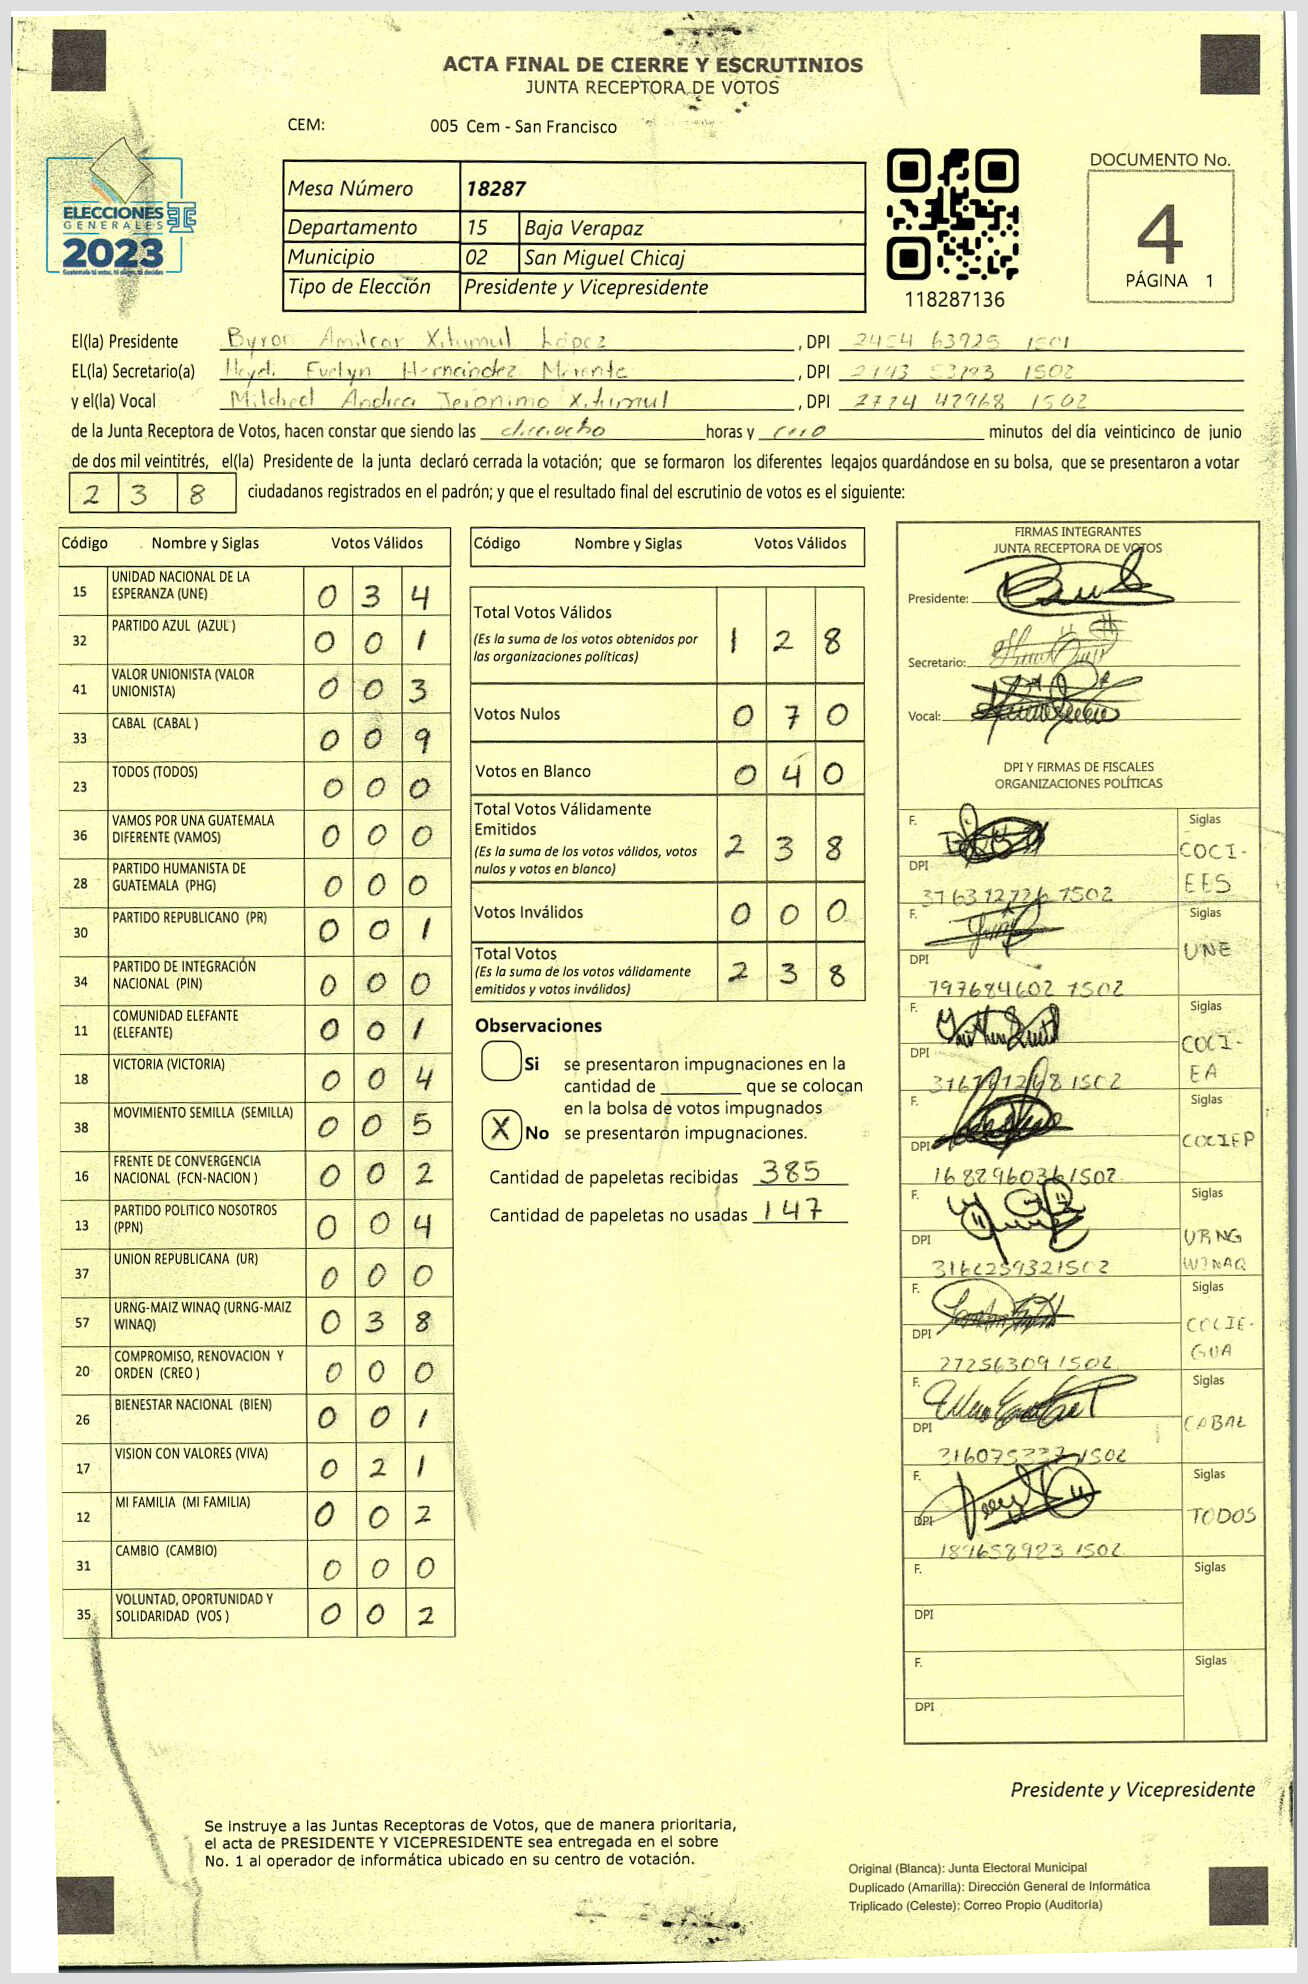 ACTA FINAL DE CIERRE Y ESCRUTINIOS
JUNTA RECEPTORA DE VOTOS
CEM: 005 Cem - San Francisco
ELECCIONES
GENERALES
2023
Guatemala tú votas, tú eliges, tú decides
Mesa Número 18287
Departamento 15 Baja Verapaz
Municipio 02 San Miguel Chicaj
Tipo de Elección Presidente y Vicepresidente
118287136
DOCUMENTO No.
4
PÁGINA 1
El(la) Presidente Byron Amilcar Xitumul López , DPI 2454 63925 1501
EL(la) Secretario(a) Heydi Evelyn Hernández , DPI 1502
y el(la) Vocal Mildred Andrea Jerónimo Xitumul , DPI 2724 42968 1502
de la Junta Receptora de Votos, hacen constar que siendo las dieciocho horas y minutos del día veinticinco de junio
de dos mil veintitrés, el(la) Presidente de la junta declaró cerrada la votación; que se formaron los diferentes legajos guardándose en su bolsa, que se presentaron a votar
238 ciudadanos registrados en el padrón; y que el resultado final del escrutinio de votos es el siguiente:
Código Nombre y Siglas Votos Válidos
15 UNIDAD NACIONAL DE LA ESPERANZA (UNE) 0 3 4
32 PARTIDO AZUL (AZUL ) 0 0 1
41 VALOR UNIONISTA (VALOR UNIONISTA) 0 0 3
33 CABAL (CABAL ) 0 0 9
23 TODOS (TODOS) 0 0 0
36 VAMOS POR UNA GUATEMALA DIFERENTE (VAMOS) 0 0 0
28 PARTIDO HUMANISTA DE GUATEMALA (PHG) 0 0 0
30 PARTIDO REPUBLICANO (PR) 0 0 1
34 PARTIDO DE INTEGRACIÓN NACIONAL (PIN) 0 0 0
11 COMUNIDAD ELEFANTE (ELEFANTE) 0 0 1
18 VICTORIA (VICTORIA) 0 0 4
38 MOVIMIENTO SEMILLA (SEMILLA) 0 0 5
16 FRENTE DE CONVERGENCIA NACIONAL (FCN-NACION ) 0 0 2
13 PARTIDO POLITICO NOSOTROS (PPN) 0 0 4
37 UNION REPUBLICANA (UR) 0 0 0
57 URNG-MAIZ WINAQ (URNG-MAIZ WINAQ) 0 3 8
20 COMPROMISO, RENOVACION Y ORDEN (CREO ) 0 0 0
26 BIENESTAR NACIONAL (BIEN) 0 0 1
17 VISION CON VALORES (VIVA) 0 2 1
12 MI FAMILIA (MI FAMILIA) 0 0 2
31 CAMBIO (CAMBIO) 0 0 0
35 VOLUNTAD, OPORTUNIDAD Y SOLIDARIDAD (VOS ) 0 0 2
Código Nombre y Siglas Votos Válidos
Total Votos Válidos 1 2 8
(Es la suma de los votos obtenidos por
las organizaciones políticas)
Votos Nulos 0 7 0
Votos en Blanco 0 4 0
Total Votos Válidamente
Emitidos 2 3 8
(Es la suma de los votos válidos, votos
nulos y votos en blanco)
Votos Inválidos 0 0 0
Total Votos 2 3 8
(Es la suma de los votos válidamente
emitidos y votos inválidos)
Observaciones
Si se presentaron impugnaciones en la
cantidad de ________ que se colocan
en la bolsa de votos impugnados
X No se presentaron impugnaciones.
Cantidad de papeletas recibidas 385
Cantidad de papeletas no usadas 147
FIRMAS INTEGRANTES
JUNTA RECEPTORA DE VOTOS
Presidente:
Secretario:
Vocal:
DPI Y FIRMAS DE FISCALES
ORGANIZACIONES POLÍTICAS
F. Siglas
DPI COCI-
EES
F. Siglas
DPI UNE
797684602 1502
F. Siglas
DPI COCI-
EA
F. Siglas
DPI COCIEP
1688960361502
F. Siglas
DPI URNG
WINAQ
F. Siglas
DPI COCIE-
GUA
272563091502
F. Siglas
DPI CABAL
F. Siglas
DPI TODOS
F. Siglas
DPI
F. Siglas
DPI
Presidente y Vicepresidente
Se instruye a las Juntas Receptoras de Votos, que de manera prioritaria,
el acta de PRESIDENTE Y VICEPRESIDENTE sea entregada en el sobre
No. 1 al operador de informática ubicado en su centro de votación.
Original (Blanca): Junta Electoral Municipal
Duplicado (Amarilla): Dirección General de Informática
Triplicado (Celeste): Correo Propio (Auditoría)